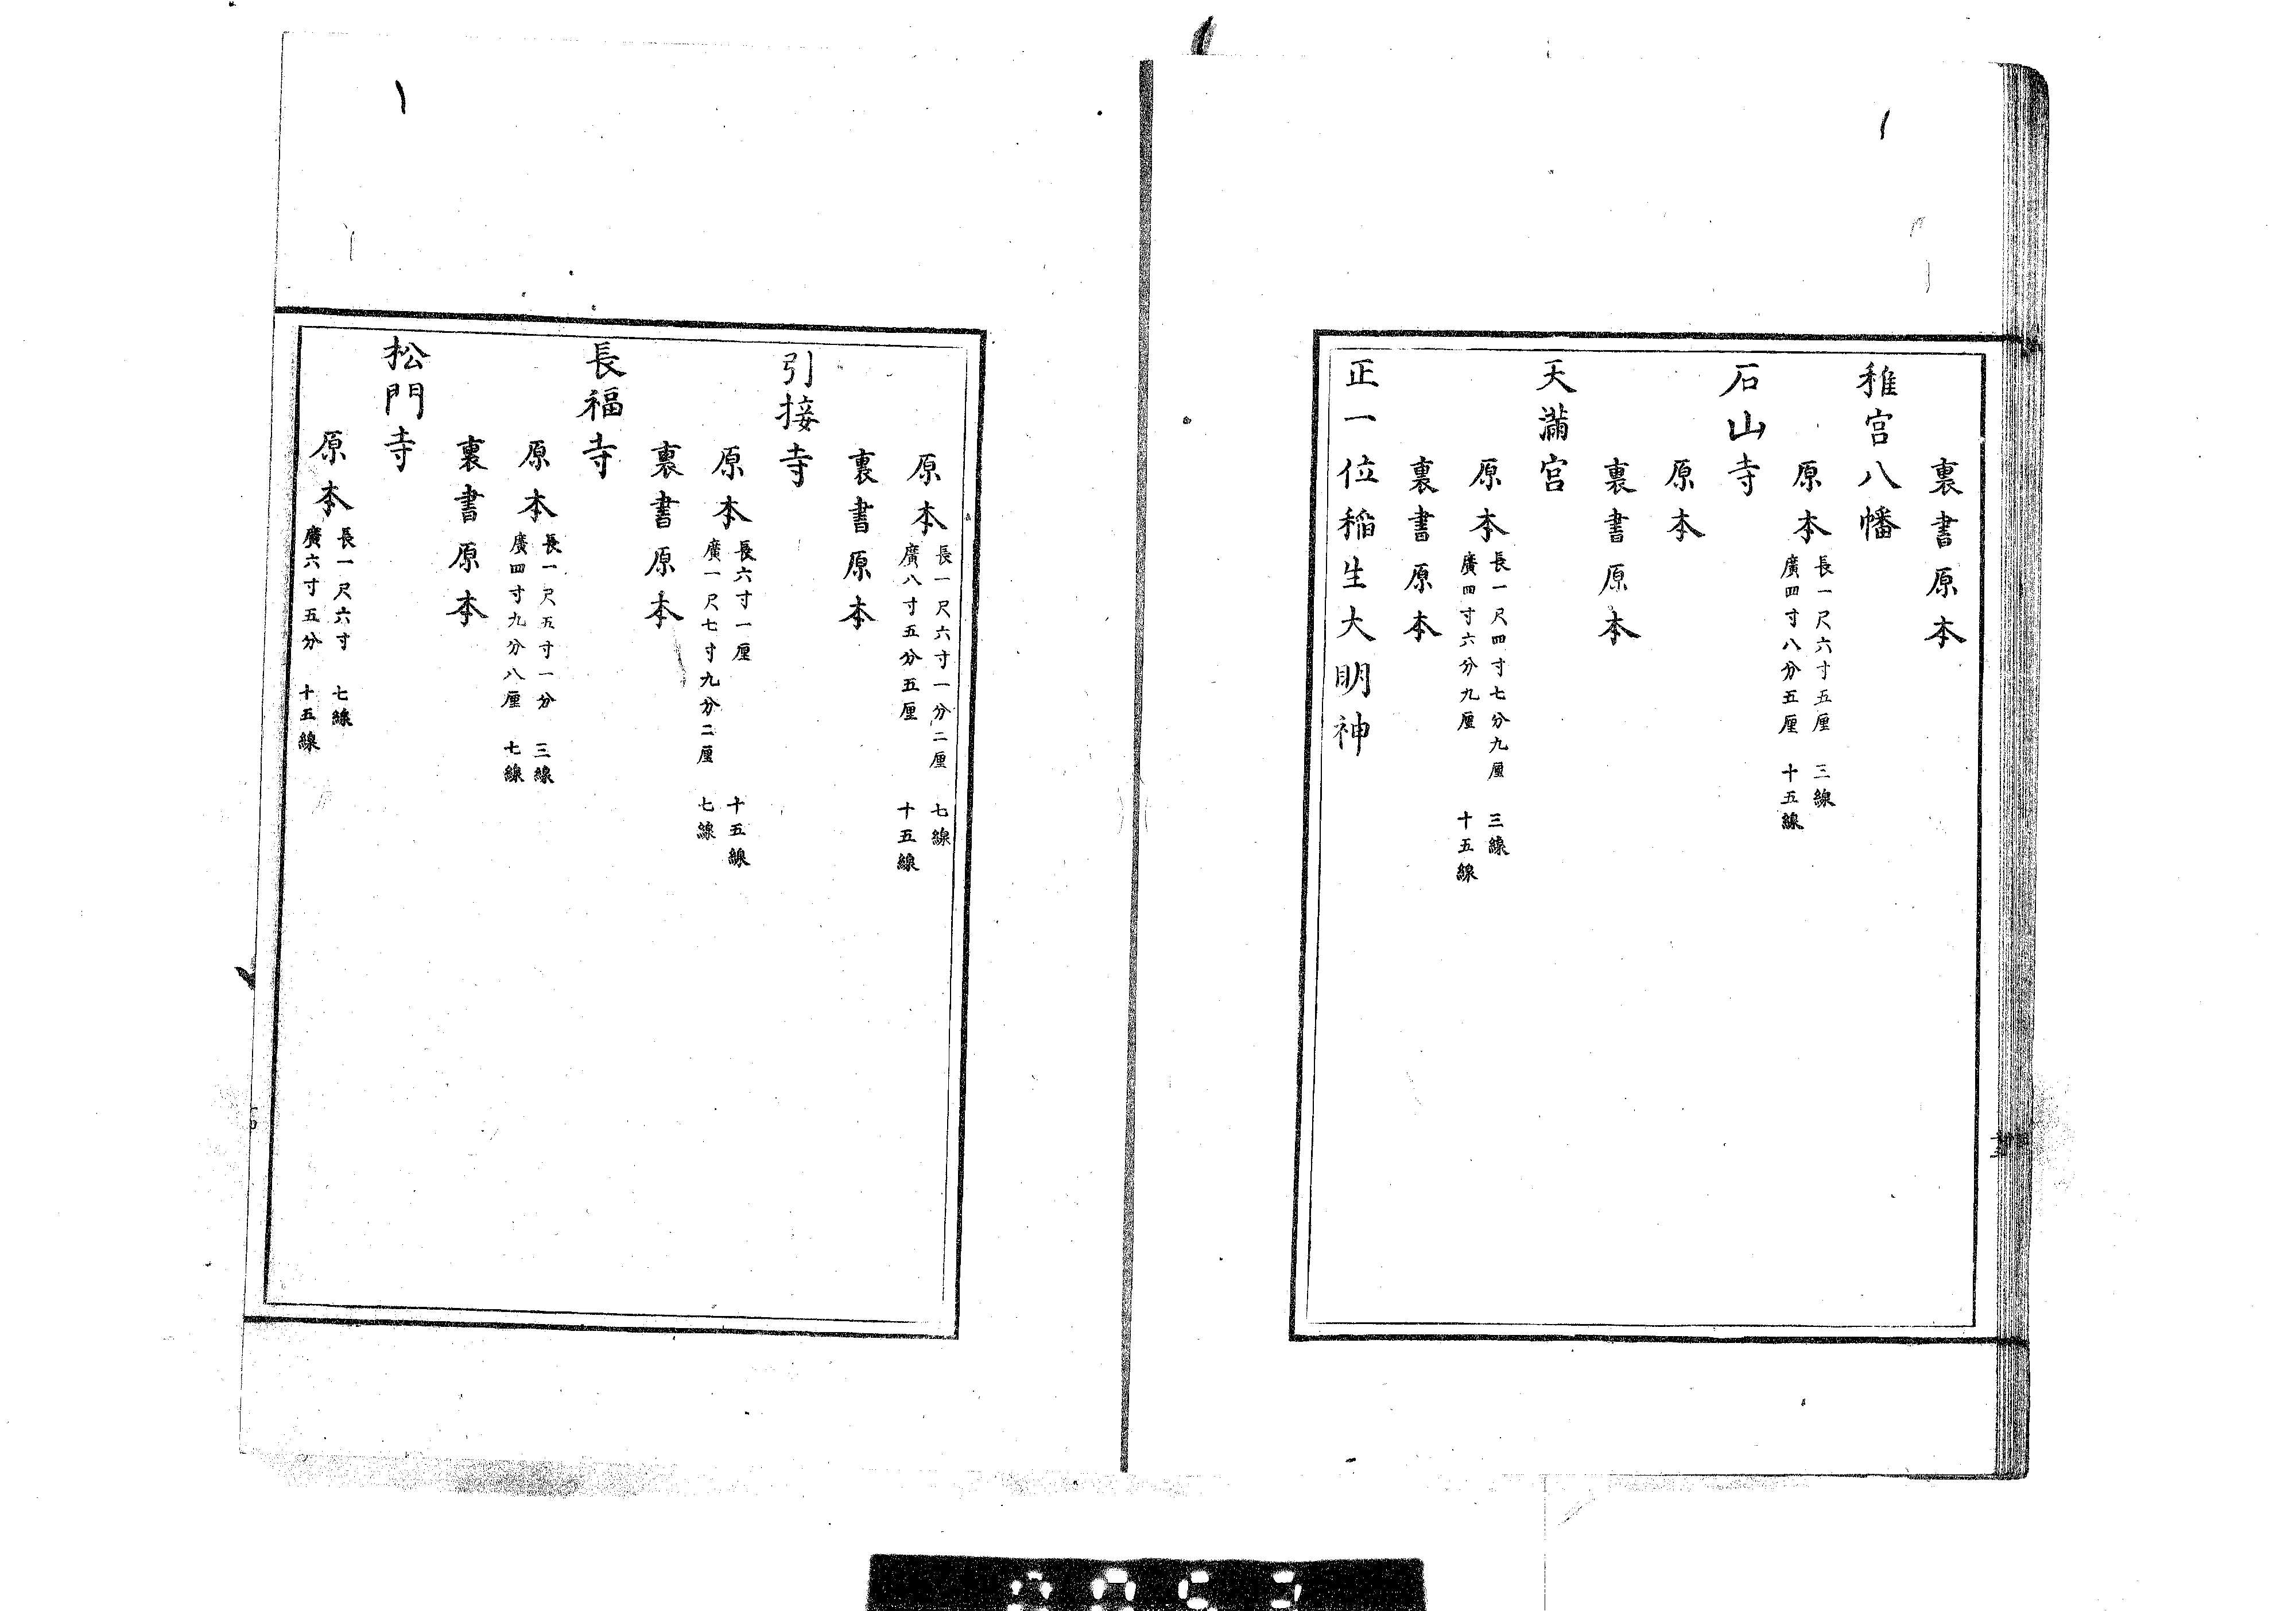 裏書原本
稚宮八幡
原本 長一尺六寸五厘 三線
廣四寸八分五厘 十五線
石山寺
原本
裏書原本
天滿宮
原本 長一尺四寸七分九厘 三線
廣四寸六分九厘 十五線
裏書原本
正一位稲生大明神
原本 長一尺六寸一分二厘 七線
廣八寸五分五厘 十五線
裏書原本
引接寺
原本 長六寸一厘 十五線
廣一尺七寸九分二厘 七線
裏書原本
長福寺
原本 長一尺五寸一分 三線
廣四寸九分八厘 七線
裏書原本
松門寺
原本 長一尺六寸 七線
廣六寸五分 十五線